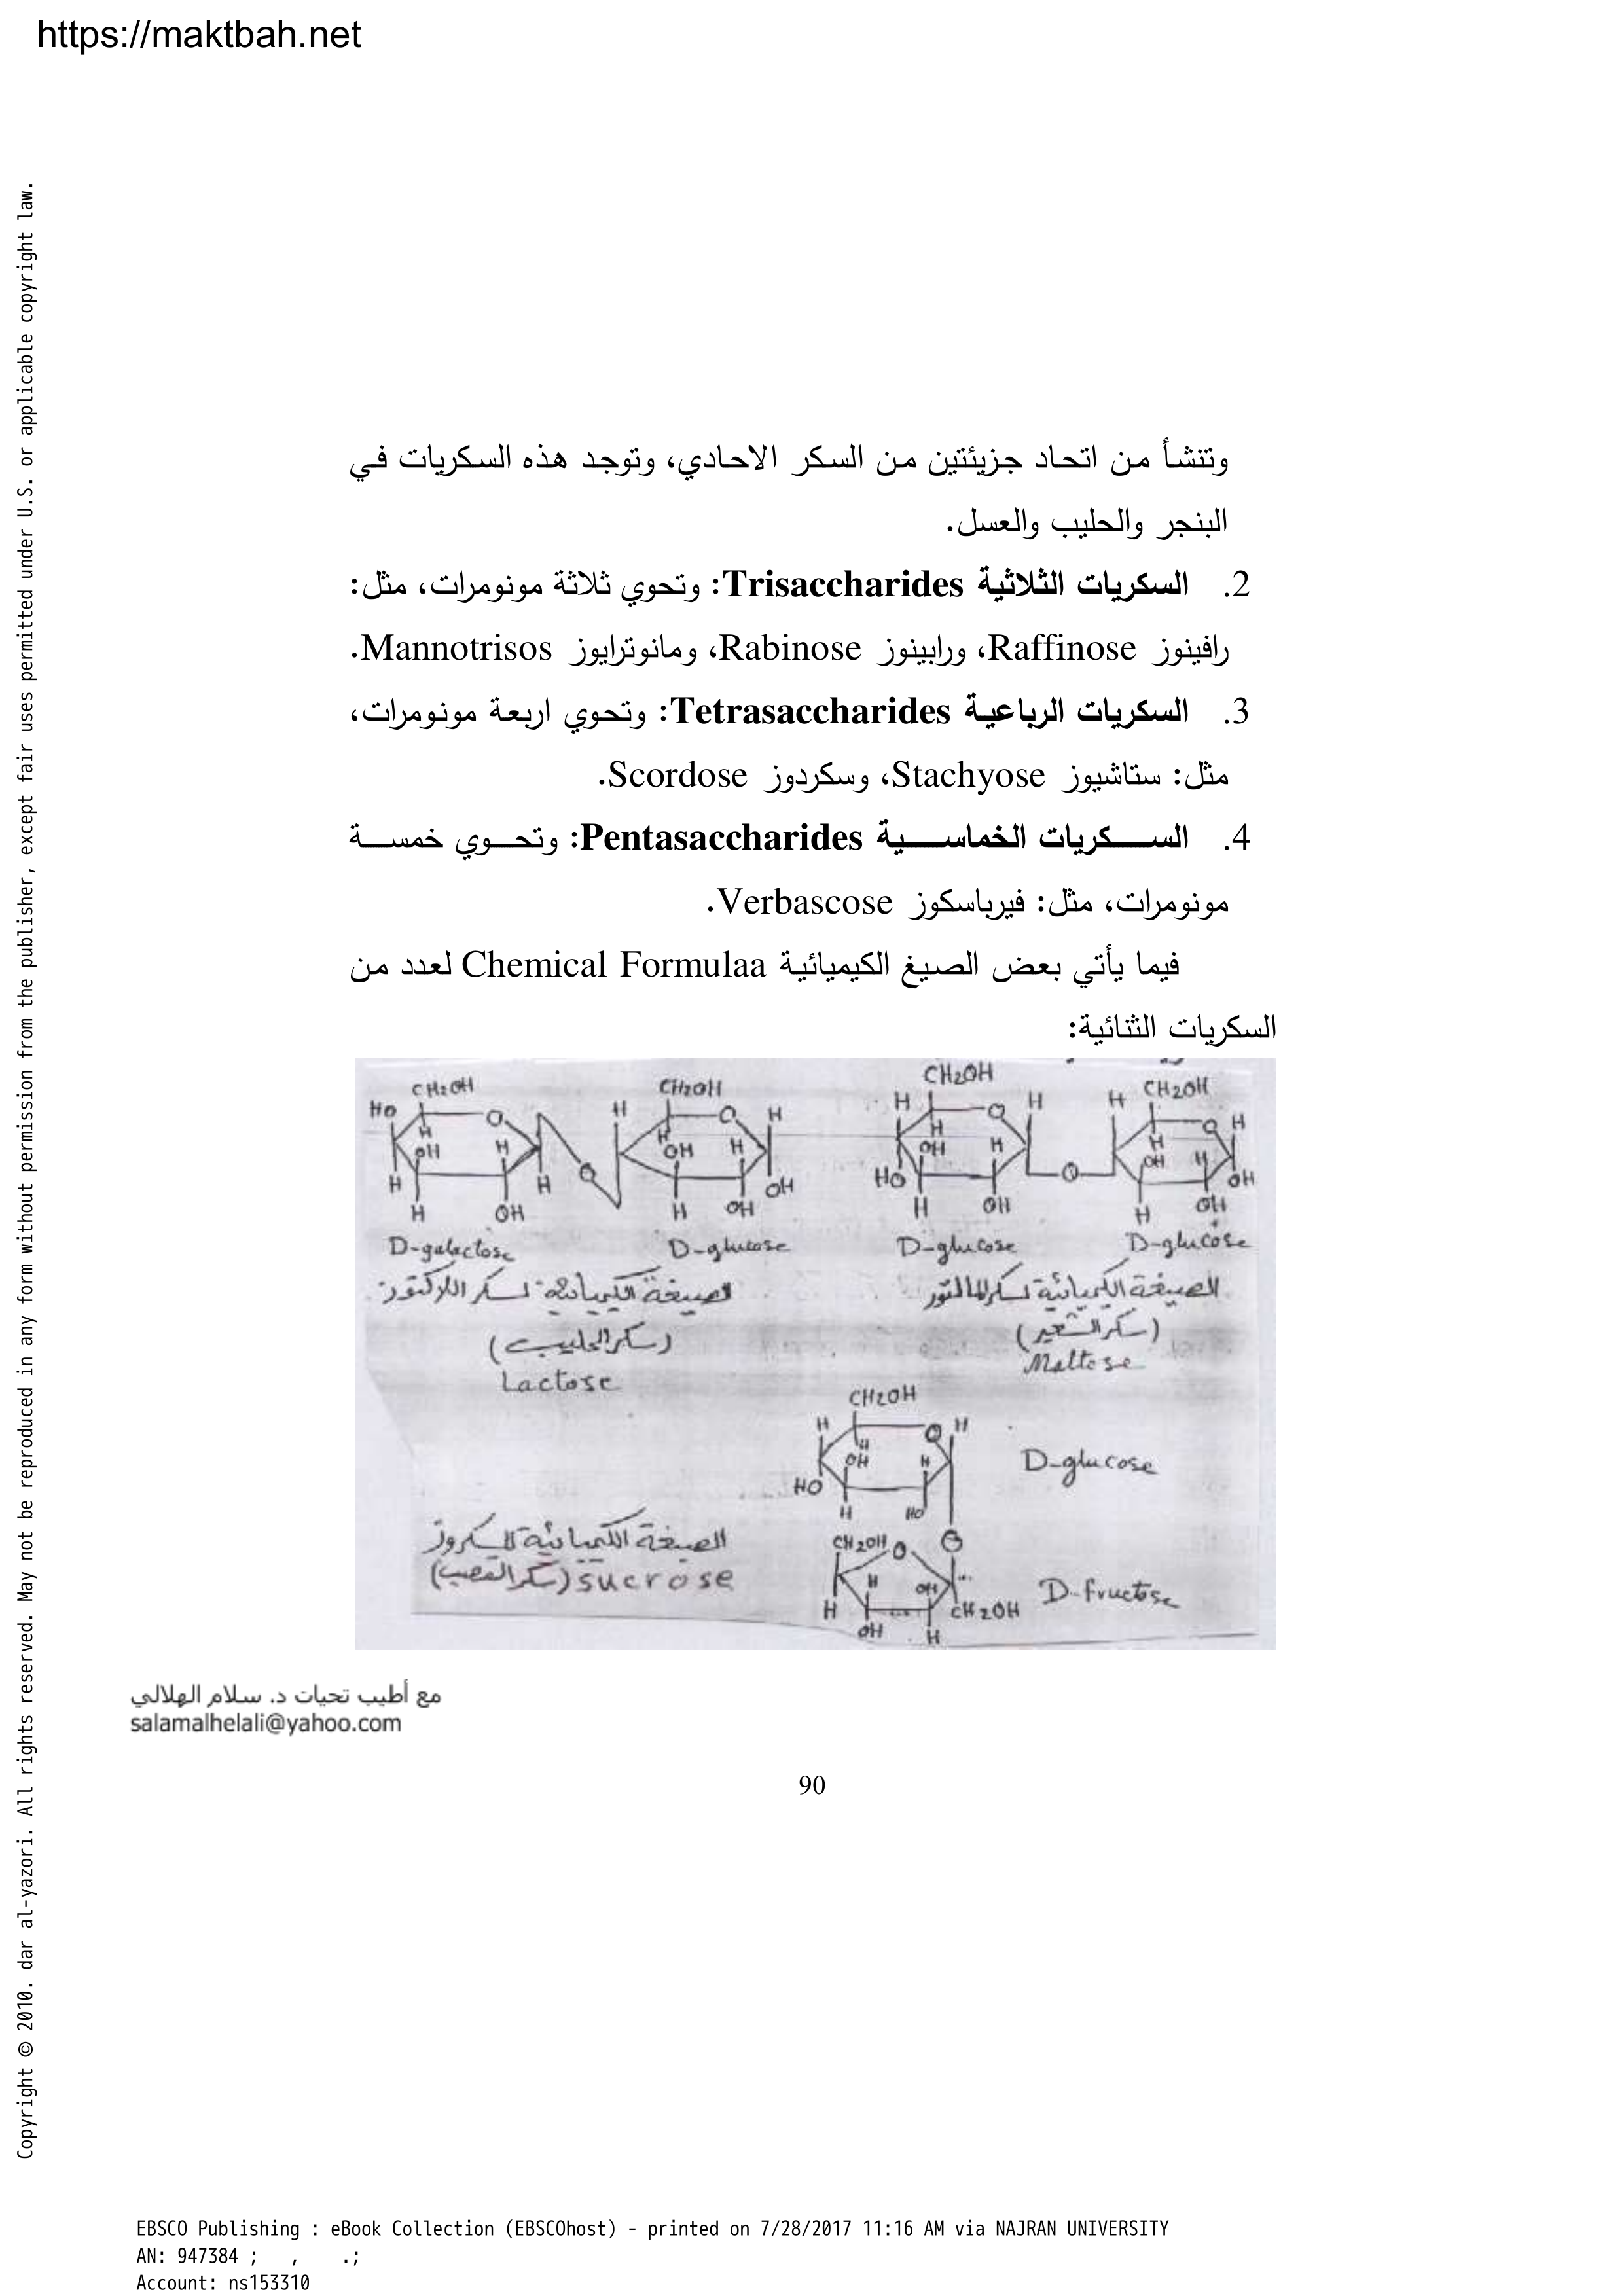 https://maktbah.net
Copyright © 2010. dar al-yazori. All rights reserved. May not be reproduced in any form without permission from the publisher, except fair uses permitted under U.S. or applicable copyright law.
وتنشأ من اتحاد جزيئتين من السكر الاحادي، وتوجد هذه السكريات في
البنجر والحليب والعسل.
2. السكريات الثلاثية Trisaccharides: وتحوي ثلاثة مونومرات، مثل:
رافينوز Raffinose، ورابينوز Rabinose، ومانوترايوز Mannotrisos.
3. السكريات الرباعية Tetrasaccharides: وتحوي اربعة مونومرات،
مثل: ستاشيوز Stachyose، وسكردوز Scordose.
4. الســـكريات الخماســـية Pentasaccharides: وتحـــوي خمســـة
مونومرات، مثل: فيرباسكوز Verbascose.
فيما يأتي بعض الصيغ الكيميائية Chemical Formulaa لعدد من
السكريات الثنائية:
CH2OH CH2OH CH2OH CH2OH
HO O H O H H O H H O H
H H H H
OH H OH H OH H OH H
H H HO O OH
O OH
H OH H OH H OH H OH
D-galactose D-glucose D-glucose D-glucose
الصيغة الكيميائية لسكر اللاكتوز
الصيغة الكيميائية لسكر المالتوز
(سكر الحليب)
(سكر الشعير)
Lactose
Maltose
CH2OH
H O H
H
OH H
HO
H HO
D-glucose
O
CH2OH O
H OH
H CH2OH
OH H
D-fructose
الصيغة الكيميائية للسكروز
(سكر القصب) sucrose
مع أطيب تحيات د. سلام الهلالي
salamalhelali@yahoo.com
90
EBSCO Publishing : eBook Collection (EBSCOhost) - printed on 7/28/2017 11:16 AM via NAJRAN UNIVERSITY
AN: 947384 ; , .;
Account: ns153310